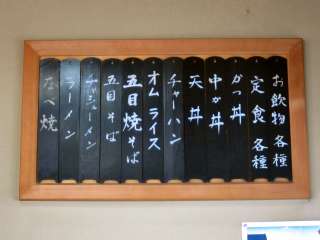 お飲物 各種
定食 各種
かつ丼
中か丼
天丼
チャーハン
オムライス
五目焼そば
五目そば
チャシューメン
ラーメン
なべ焼